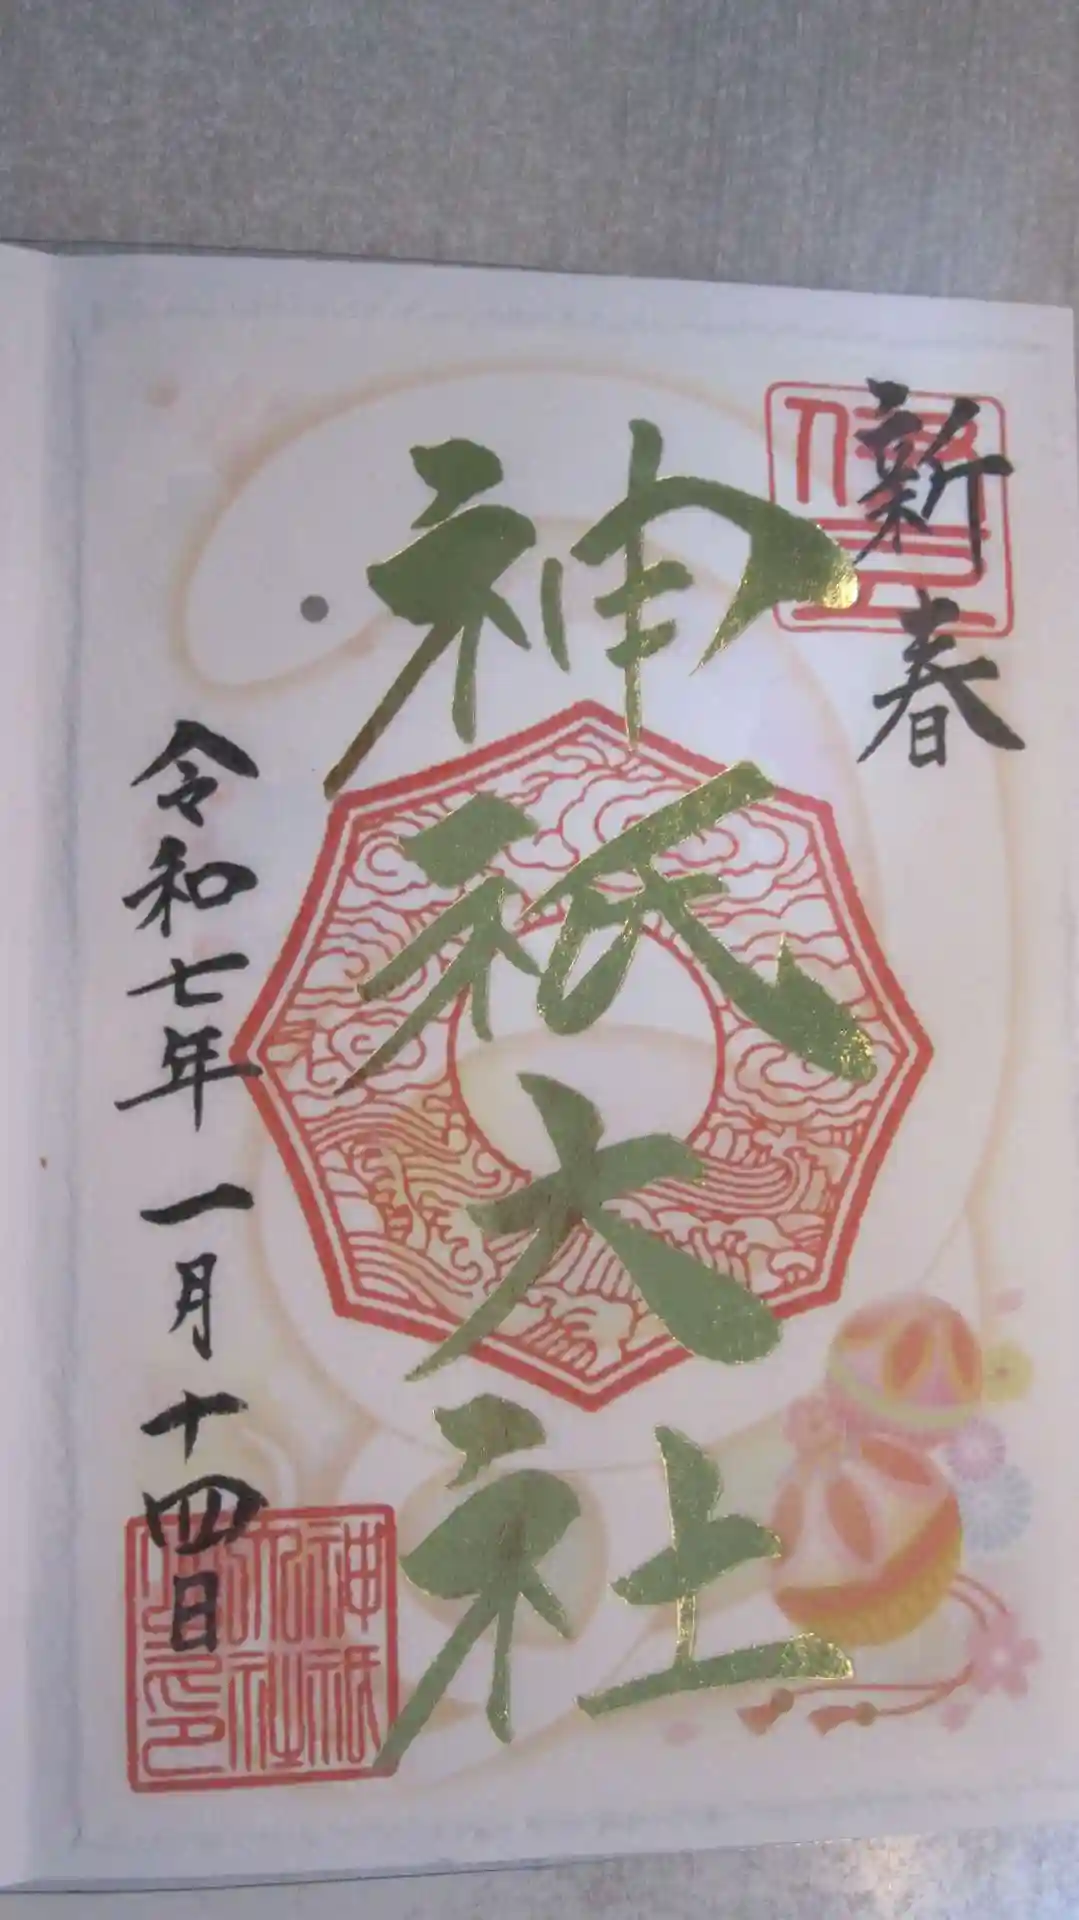 新春
神祇大社
令和七年一月十四日
神祇
大社
之印